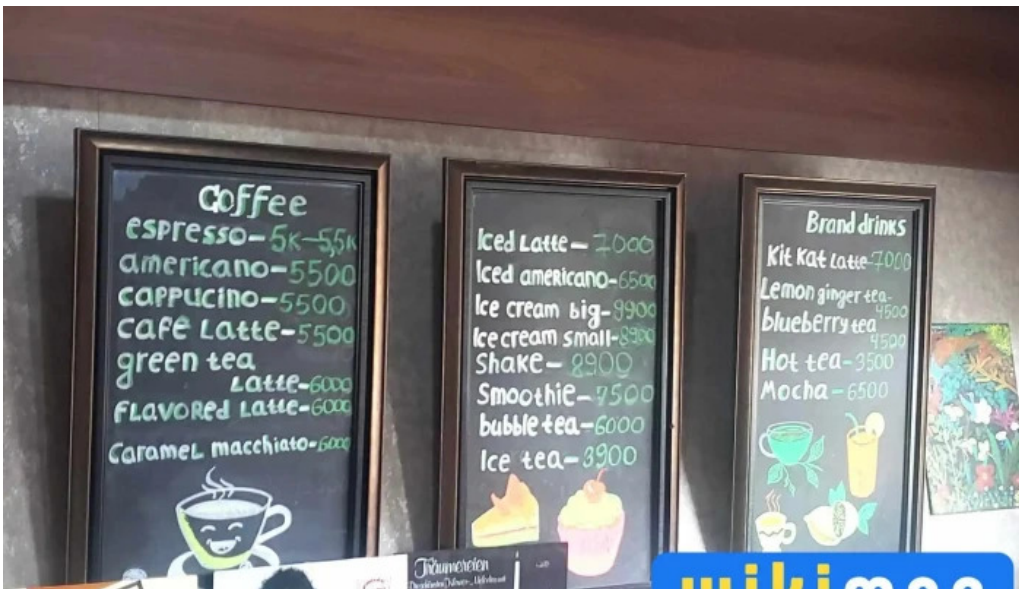 Coffee
espresso-5K-5,5K
americano-5500
cappucino-5500
café Latte-5500
green tea
Latte-6000
FLavoRed Latte-6000
CarameL macchiato-6000
Iced Latte-7000
Iced americano-6500
Ice cream big-9900
Ice cream small-8900
Shake-8900
Smoothie-7500
bubble tea-6000
Ice tea-3900
Brand drinks
Kit Kat Latte-7000
Lemon ginger tea-
4500
blueberry tea
4500
Hot tea-3500
Mocha-6500
Träumereien
wiki